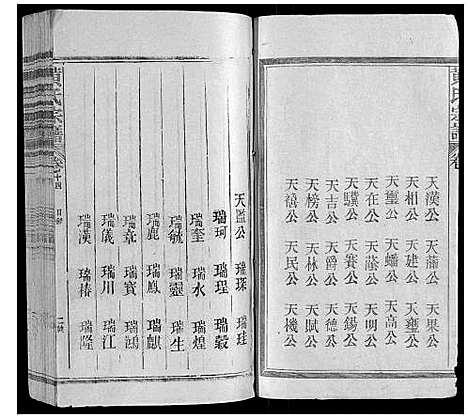 黃氏宗譜 卷
天漢公 天蘭公 天果公
天相公 天建公 天璽公
天璽公 天蟠公 天高公
天在公 天蔭公 天明公
天驥公 天賚公 天錫公
天吉公 天爵公 天德公
天榜公 天林公 天賦公
天禧公 天民公 天機公
天監公 瑞琛 瑞珪
瑞珂 瑞理 瑞穀
瑞奎 瑞水 瑞煌
瑞毓 瑞靈 瑞生
瑞鹿 瑞鳳 瑞麒
瑞章 瑞賓 瑞鴻
瑞儀 瑞川 瑞江
瑞漢 瑞椿 瑞隆
黃氏宗譜